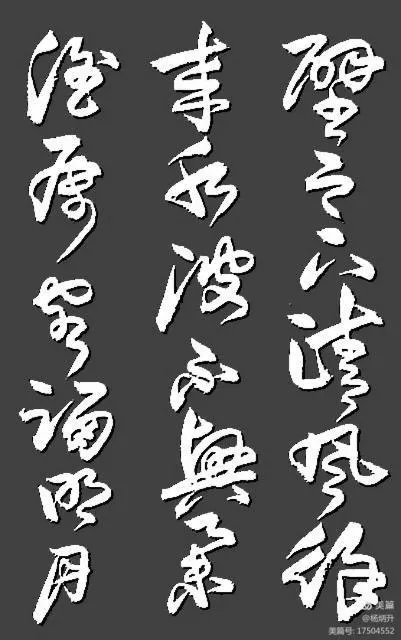 壁之下清風徐
來水波不興舉
酒屬客誦明月
美篇
@杨炳升
美篇号: 17504552